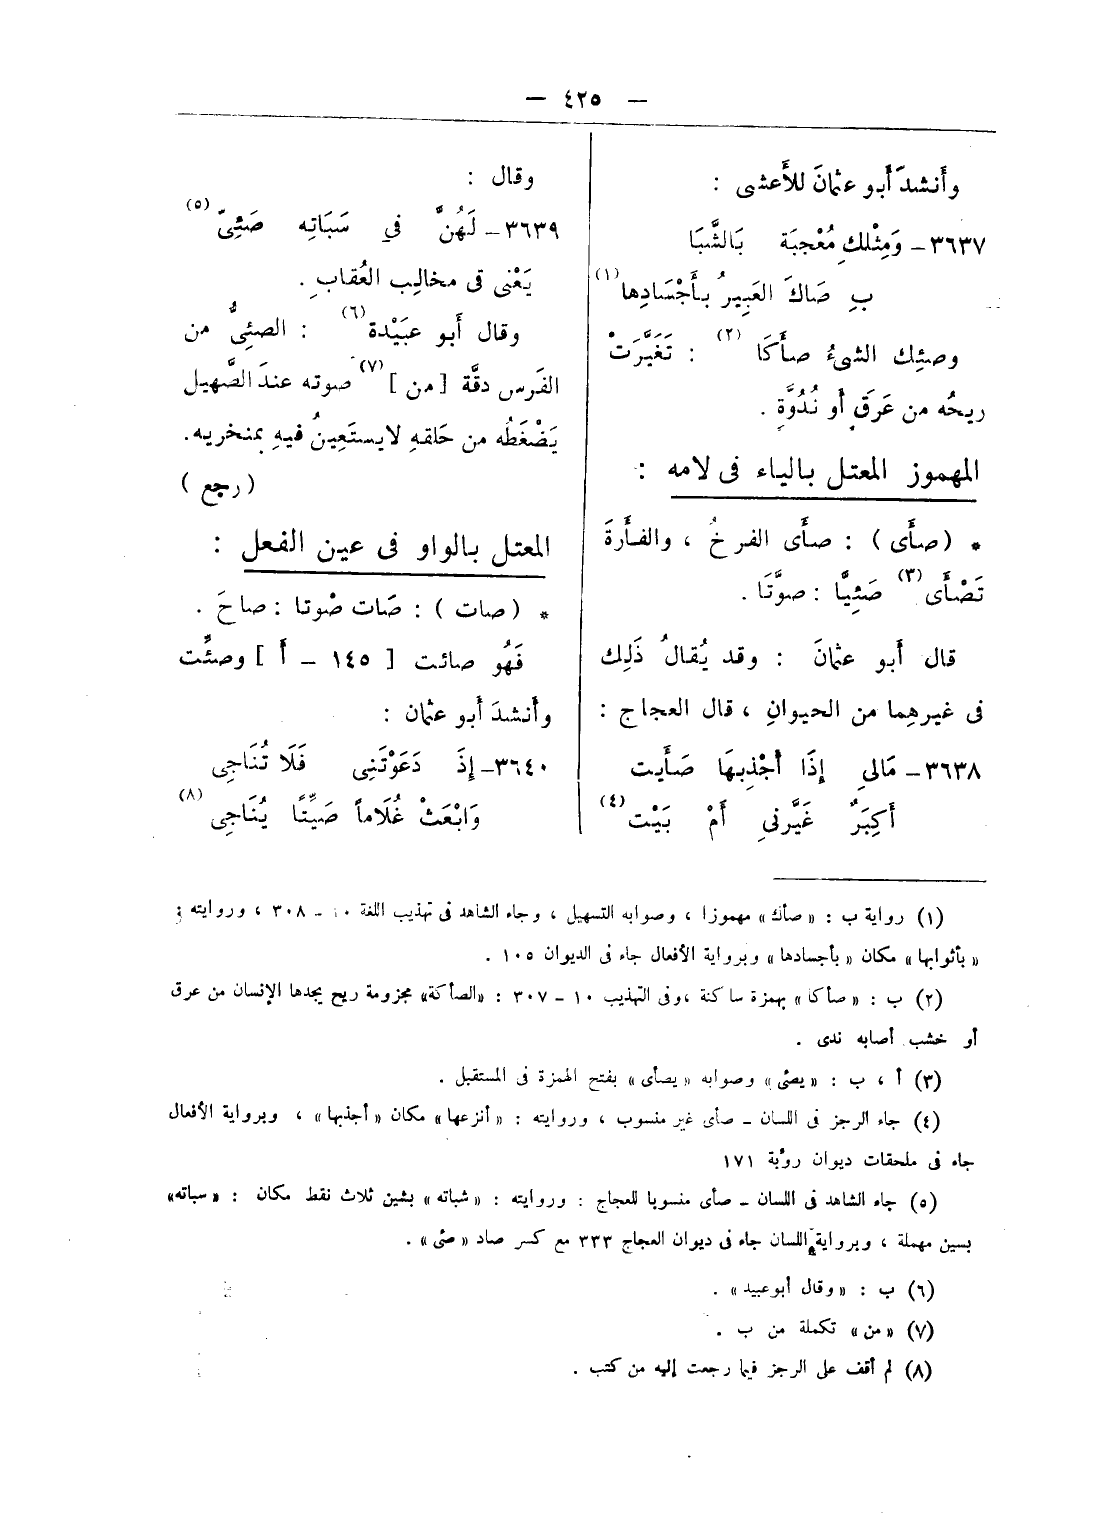 — ٤٢٥ —
وأَنشدَ أَبو عثمانَ للأَعشى :
٣٦٣٧ – وَمِثْلكِ مُعْجبَة بَالشَّبَا
بِ صَاكَ العَبِيرُ بأَجْسَادِها (١)
وصئِك الشىءُ صأَكَا (٢) : تَغَيَّرَتْ
ريحُه من عَرَقٍ أَو نُدُوَّةٍ .
المهموز المعتل بالياء فى لامه :
* (صأَى ) : صأَى الفرخُ ، والفأْرةَ
تَصْأَى (٣) صَئِيًّا : صوَّتَا .
قال أَبو عثمانَ : وقد يُقالُ ذَلِك
فى غيرهِما من الحيوانِ ، قال العجاج :
٣٦٣٨ – مَالىِ إِذَا أَجْذِبهَا صَأَيت
أَكِبَرٌ غَيَّرنىِ أَمْ بَيْت (٤)
وقال :
٣٦٣٩ – لَهُنَّ فىِ سَبَاتِه صَئِىّ (٥)
يَعْنى فى مخالبِ العُقابِ .
وقال أَبو عبَيْدة (٦) : الصئِىُّ من
الفَرَس دقَّة [ من ] (٧) صوته عندَ الصَّهيل
يَضْغَطُه من حَلقهِ لايستَعِينُ فيهِ بمنخريه.
( رجع )
المعتل بالواو فى عين الفعل :
* ( صات ) : صَات صْوتا : صاحَ .
فَهُو صائت [ ١٤٥ – أَ ] وصيِّت
وأَنشدَ أَبو عثمان :
٣٦٤٠ – إِذَ دَعَوْتَنِى فَلَا تُنَاجِى
وَابْعَثْ غُلَاماً صَيِّتًا يُنَاجِى (٨)
(١) رواية ب : «صأك» مهموزا ، وصوابه التسهيل ، وجاء الشاهد فى تهذيب اللغة ١٠ – ٣٠٨ ، وروايته :
«بأثوابها» مكان «بأجسادها» وبرواية الأفعال جاء فى الديوان ١٠٥ .
(٢) ب : «صأكا» بهمزة ساكنة ،وفى التهذيب ١٠ – ٣٠٧ : «الصأكة» مجزومة ريح يجدها الإنسان من عرق
أو خشب أصابه ندى .
(٣) أ ، ب : «يصئى» وصوابه «يصأى» بفتح الهمزة فى المستقبل .
(٤) جاء الرجز فى اللسان – صأى غير منسوب ، وروايته : «أنزعها» مكان «أجذبها» ، وبرواية الأفعال
جاء فى ملحقات ديوان رؤبة ١٧١
(٥) جاء الشاهد فى اللسان – صأى منسوبا للعجاج : وروايته : «شباته» بشين ثلاث نقط مكان : «سباته»
بسين مهملة ، وبرواية اللسان جاء فى ديوان العجاج ٣٣٣ مع كسر صاد «صئى» .
(٦) ب : «وقال أبوعبيد» .
(٧) «من» تكملة من ب .
(٨) لم أقف على الرجز فيما رجعت إليه من كتب .